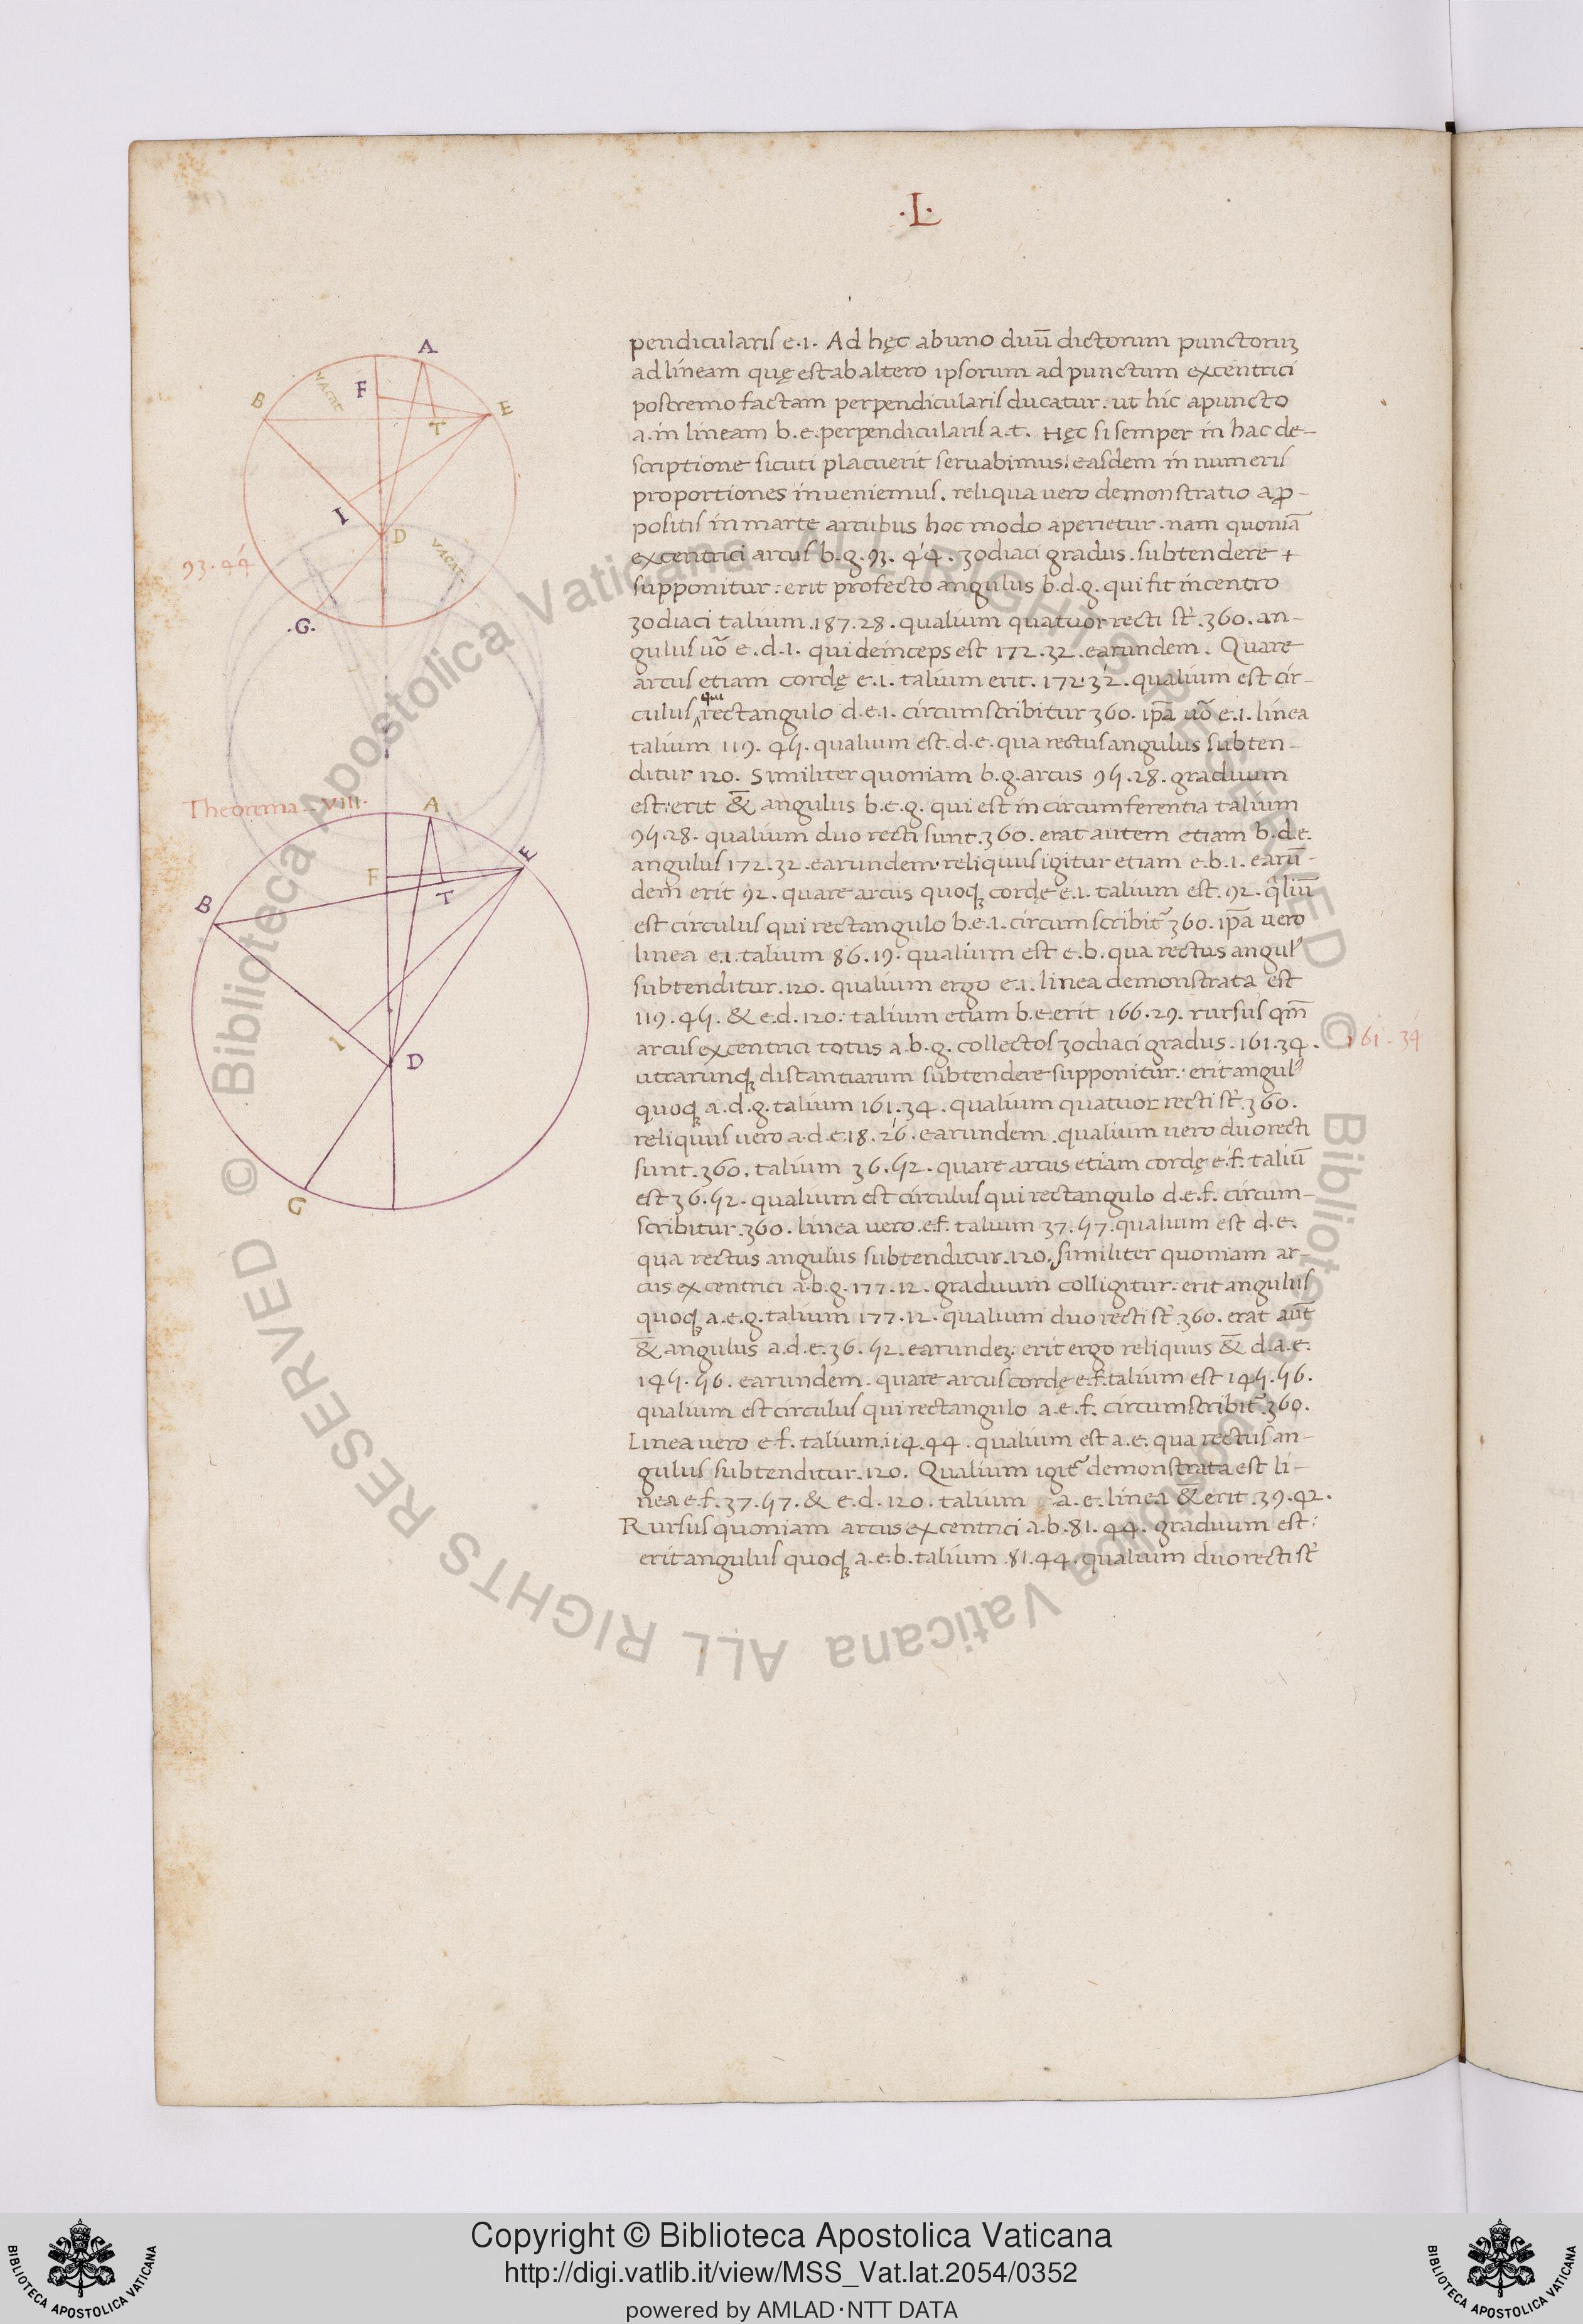 .L.
pendicularis e.i. Ad hęc ab uno duū dictorum punctorum
ad lineam quę est ab altero ipsorum ad punctum excentrici
postremo factam perpendicularis ducatur: ut hic a puncto
a. in lineam b.e. perpendicularis a.t. Hęc si semper in hac de-
scriptione sicuti placuerit seruabimus: easdem in numeris
proportiones inueniemus. reliqua uero demonstratio a ꝓ-
positis in marte arcubus hoc modo aperietur. nam quoniā
excentrici arcus b.g. 93. 44. zodiaci gradus. subtendere +
supponitur: erit profecto angulus b.d.g. qui fit in centro
zodiaci talium .187.28. qualium quatuor recti st̄. 360. an-
gulus uō e.d.i. qui deinceps est 172.32. earundem. Quare
arcus etiam cordę e.i. talium erit. 172.32. qualium est cir-
culus qui rectangulo d.e.i. circumscribitur 360. ip̄a uō e.i. linea
talium 119. 45. qualium est. d.e. qua rectus angulus subten-
ditur 120. Similiter quoniam b.g. arcus 95.28. graduum
est: erit & angulus b.e.g. qui est in circumferentia talium
95.28. qualium duo recti sunt. 360. erat autem etiam b.d.e.
angulus 172.32. earundem. reliquus igitur etiam e.b.i. earū-
dem erit 92. quare arcus quoqꝫ cordę e.i. talium est. 92. q̄liū
est circulus qui rectangulo b.e.i. circumscribit̄ 360. ip̄a uero
linea e.i. talium 86.19. qualium est e.b. qua rectus angul'
subtenditur. 120. qualium ergo e.i. linea demonstrata est
119.45. & e.d. 120: talium etiam b.e. erit 166.29. rursus qm̄
arcus excentrici totus a.b.g. collectos zodiaci gradus. 161.34.
utrarunqꝫ distantiarum subtendere supponitur: erit angul'
quoqꝫ a.d.g. talium 161.34. qualium quatuor recti st̄. 360.
reliquus uero a.d.e. 18.26. earundem. qualium uero duo recti
sunt. 360. talium 36.52. quare arcus etiam cordę e.f. taliū
est 36.52. qualium est circulus qui rectangulo d.e.f. circum-
scribitur. 360. linea uero. e.f. talium 37.57. qualium est d.e.
qua rectus angulus subtenditur. 120. similiter quoniam ar-
cus excentrici a.b.g. 177.12. graduum colligitur: erit angulus
quoqꝫ a.e.g. talium 177.12. qualium duo recti st̄. 360. erat aut̄
& angulus a.d.e. 36.52. earundeꝫ. erit ergo reliquus & d.a.e.
145.56. earundem. quare arcus cordę e.f. talium est 145.56.
qualium est circulus qui rectangulo a.e.f. circumscribit̄. 360.
Linea uero e.f. talium. 114.44. qualium est a.e. qua rectus an-
gulus subtenditur. 120. Qualium igit̄ demonstrata est li-
nea e.f. 37.57. & e.d. 120. talium a.e. linea & erit. 39.42.
Rursus quoniam arcus excentrici a.b. 81.44. graduum est:
erit angulus quoqꝫ a.e.b. talium .81.44. qualium duo recti st̄
161.34
A
B
F
E
T
vacat
I
D
vacat.
93.44
.G.
Theorema. viii.
A
E
F
T
B
I
D
G
Copyright © Biblioteca Apostolica Vaticana
http://digi.vatlib.it/view/MSS_Vat.lat.2054/0352
powered by AMLAD·NTT DATA
BIBLIOTECA APOSTOLICA VATICANA
BIBLIOTECA APOSTOLICA VATICANA
© Biblioteca Apostolica Vaticana ALL RIGHTS RESERVED
© Biblioteca Apostolica Vaticana ALL RIGHTS RESERVED